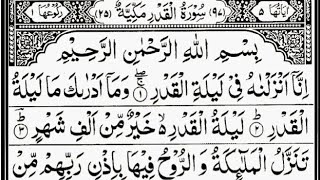 اٰیَاتُهَا ۵ (۹۷) سُوْرَةُ الْقَدْرِ مَكِّیَّةٌ (۲۵) رُكُوْعُهَا ۱
بِسْمِ اللّٰهِ الرَّحْمٰنِ الرَّحِیْمِ
اِنَّاۤ اَنْزَلْنٰهُ فِیْ لَیْلَةِ الْقَدْرِ ۚۖ﴿۱﴾ وَمَاۤ اَدْرٰىكَ مَا لَیْلَةُ
الْقَدْرِ ؕ﴿۲﴾ لَیْلَةُ الْقَدْرِ ۙ۬ خَیْرٌ مِّنْ اَلْفِ شَهْرٍ ؕؔ﴿۳﴾
تَنَزَّلُ الْمَلٰٓىِٕكَةُ وَ الرُّوْحُ فِیْهَا بِاِذْنِ رَبِّهِمْ مِّنْ